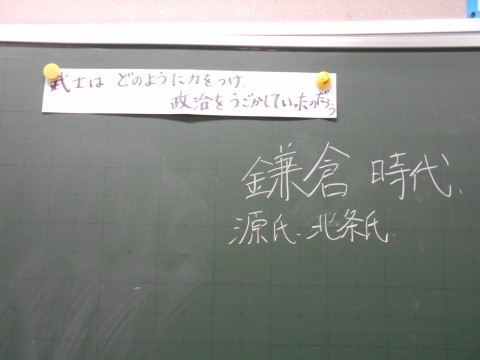 武士は どのように力をつけ、
政治をうごかしていったのだろう
鎌倉 時代、
源氏・北条氏